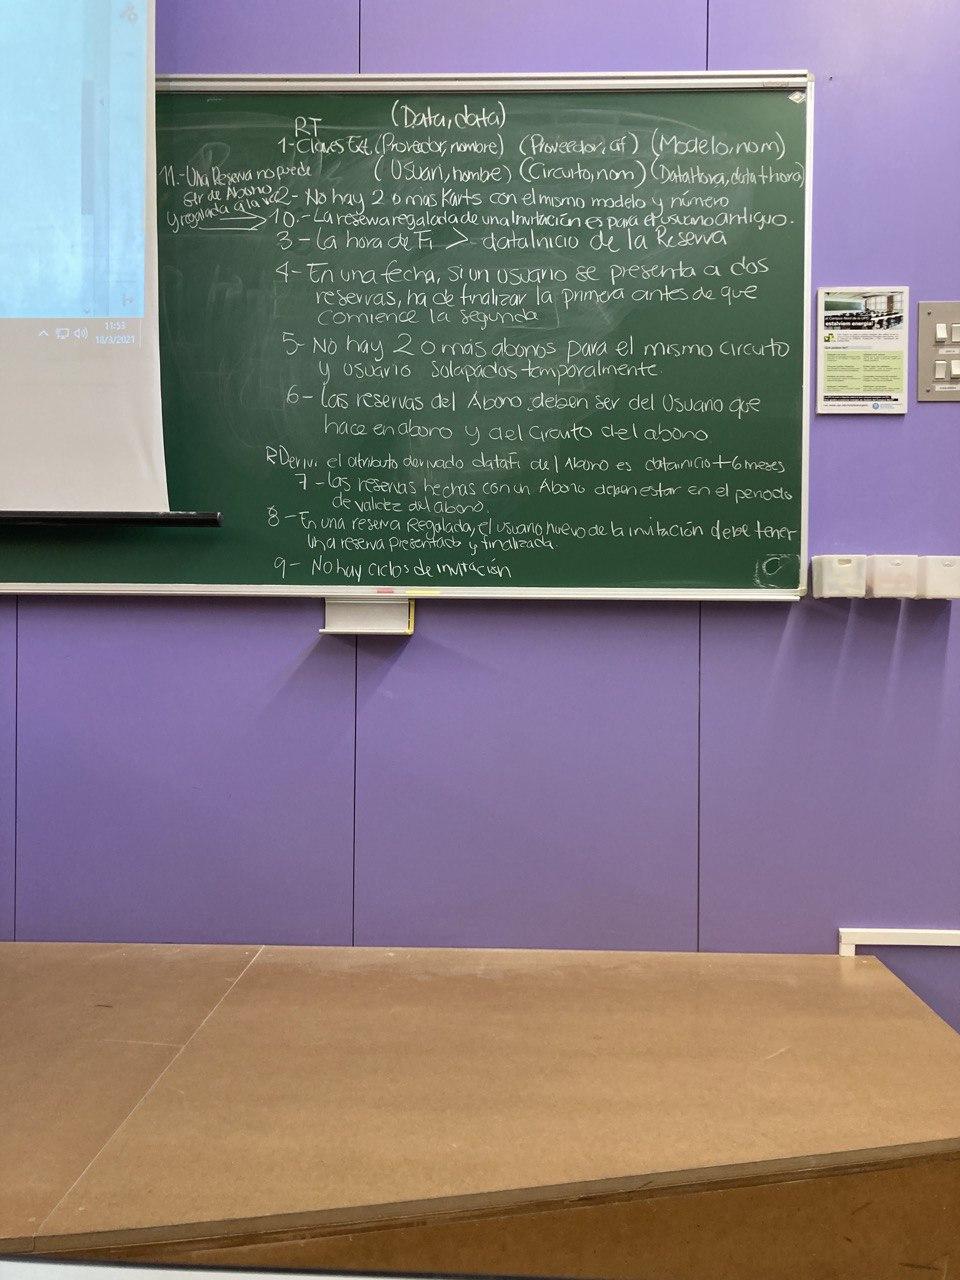 RT
(Data, data)
1-Claves Ext. (Proveedor, nombre) (Proveedor, cif) (Modelo, nom)
(Usuari, nombre) (Circuito, nom) (DataHora, data+hora)
11.-Una Reserva no puede
ser de Abono
y regalada a la vez
2- No hay 2 o más Karts con el mismo modelo y número
10.- La reserva regalada de una Invitación es para el usuario antiguo.
3 - La hora de Fi > dataInicio de la Reserva
4- En una fecha, si un usuario se presenta a dos
reservas, ha de finalizar la primera antes de que
comience la segunda
5- No hay 2 o más abonos para el mismo circuito
y usuario solapados temporalmente.
6 - Las reservas del Abono deben ser del Usuario que
hace en abono y del Circuito del abono
RDeriv: el atributo derivado dataFi del Abono es datainicio+6 meses
7 - Las reservas hechas con un Abono deben estar en el periodo
de validez del abono.
8 - En una reserva Regalada, el usuario nuevo de la invitación debe tener
una reserva presentado y finalizada.
9 - No hay ciclos de invitación
11:53
18/3/2021
estalviem energia!